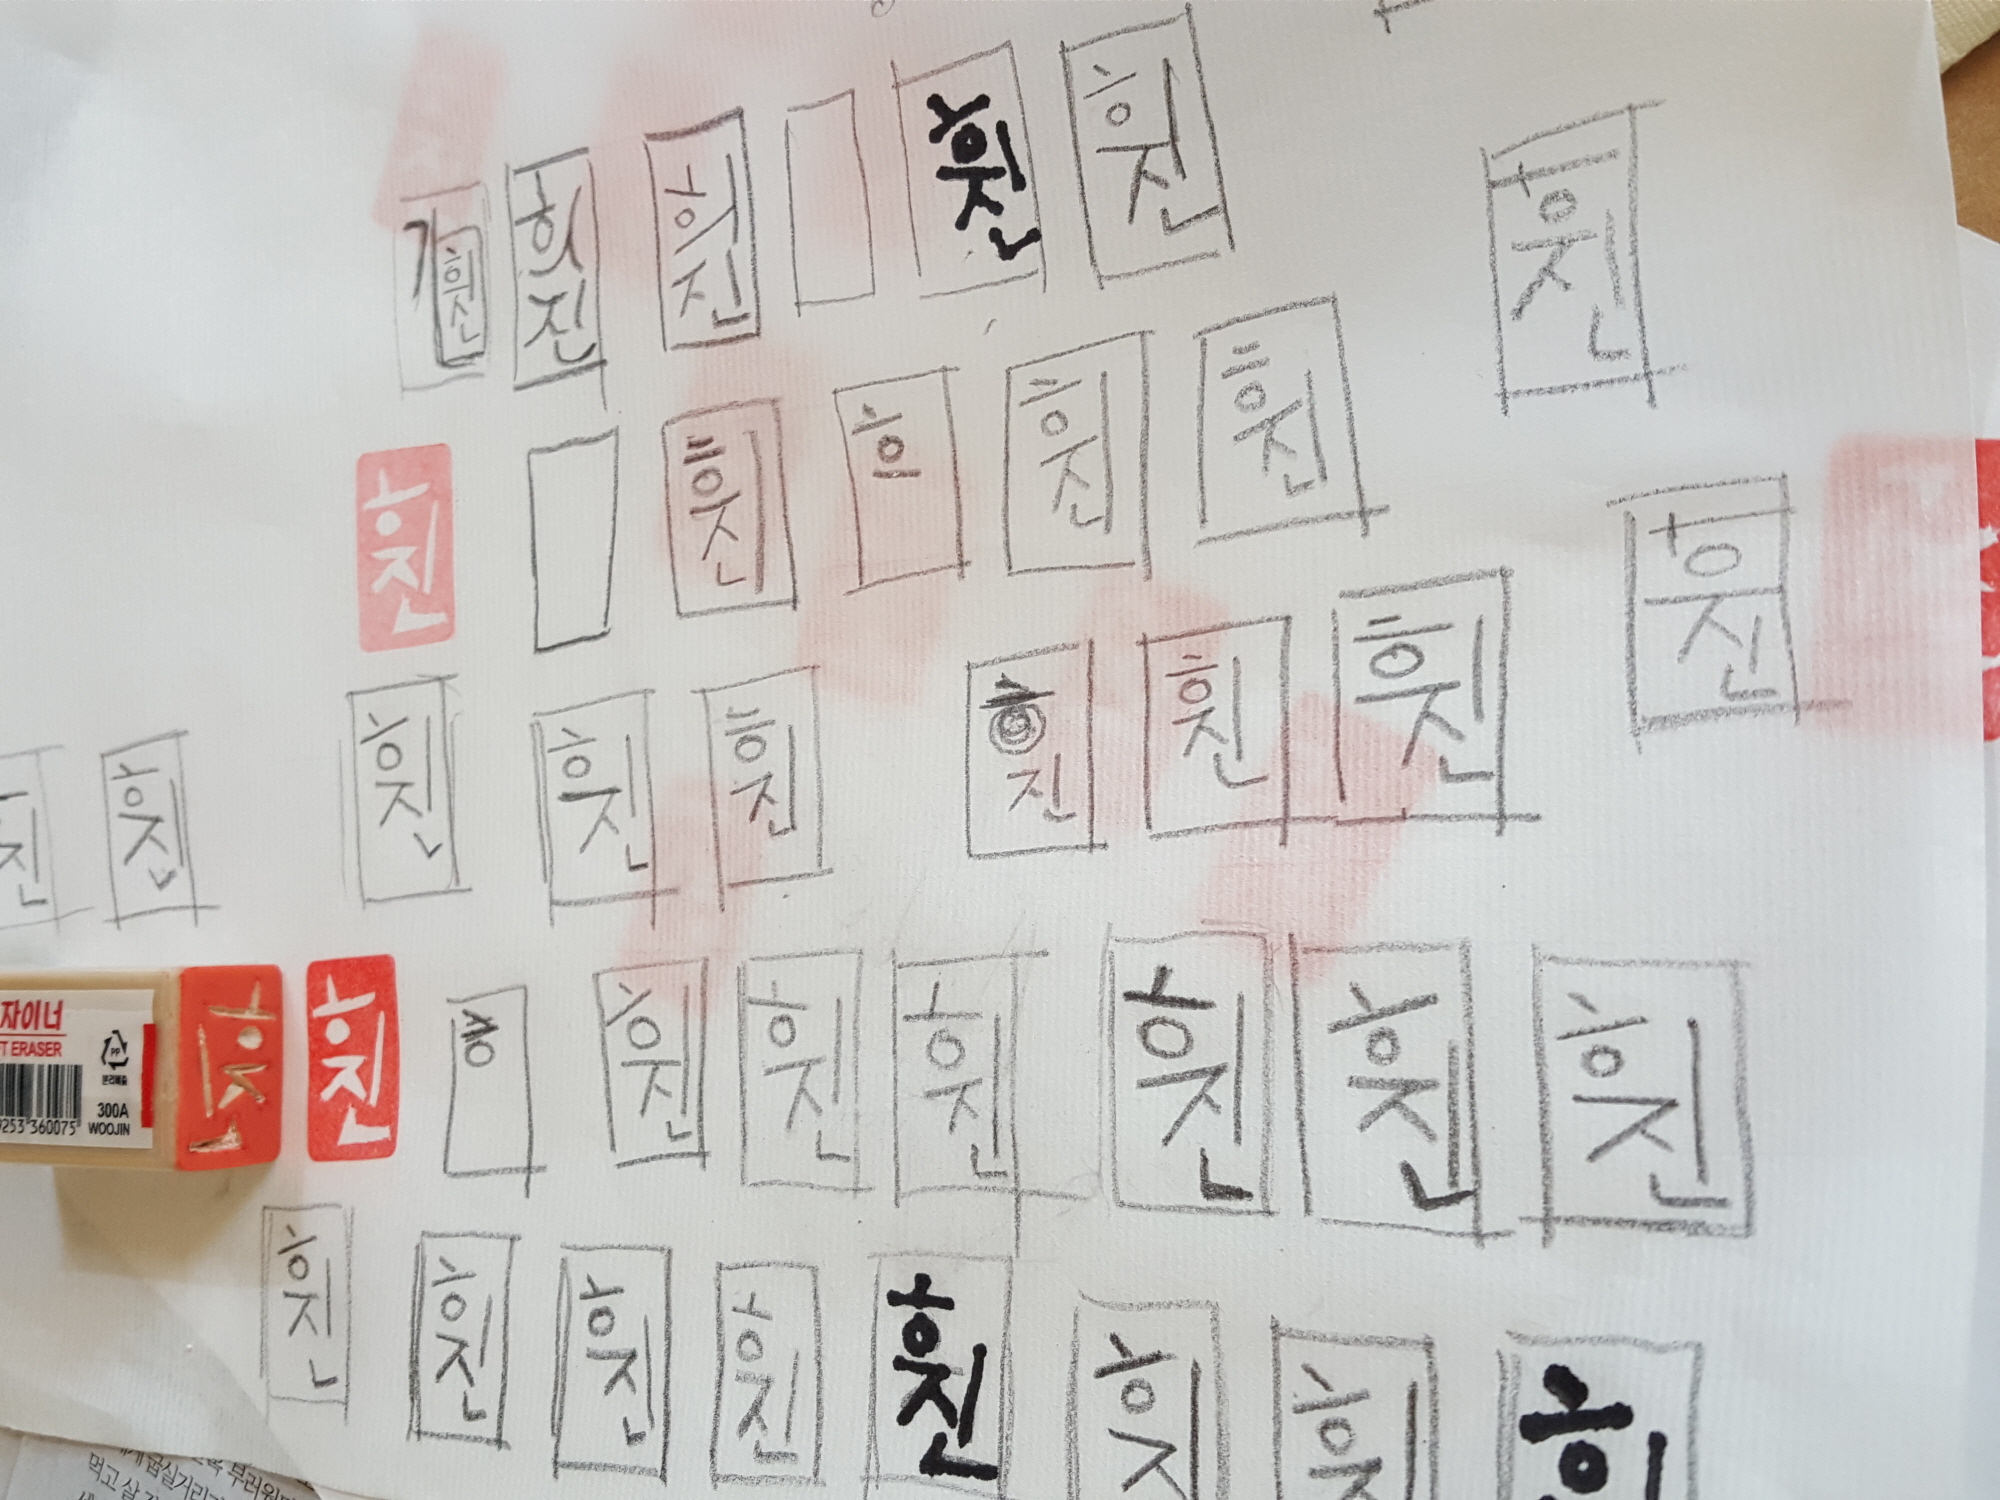 희진 희진 희진 희진 희진
희진 희진 흐 희진 희진 희진
진 희진 희진 희진 희진 희진 희진 희진
자이너
FT ERASER
PP
분리배출
300A
9253 360075
WOOJIN
희진 희진 희진 희진 희진 희진 희진
희진 희진 희진 희진 희진 희진 희진 희
부러워
먹고 살